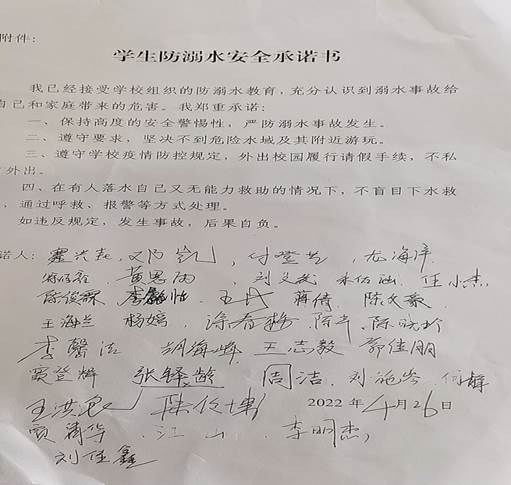 附件：
学生防溺水安全承诺书
我已经接受学校组织的防溺水教育，充分认识到溺水事故给
自己和家庭带来的危害。我郑重承诺：
一、保持高度的安全警惕性，严防溺水事故发生。
二、遵守要求，坚决不到危险水域及其附近游玩。
三、遵守学校疫情防控规定，外出校园履行请假手续，不私
外出。
四、在有人落水自己又无能力救助的情况下，不盲目下水救
，通过呼救、报警等方式处理。
如违反规定，发生事故，后果自负。
诺人： 邓凯
黄思雨 汪小杰
蒋倩 陈文豪
王海兰 杨婷 涂春梅
李馨洁 胡海峰 王志毅 郭佳朋
贾登辉 张铎龄 周洁
2022年4月26日
贾清华 江山 李明杰
刘佳鑫